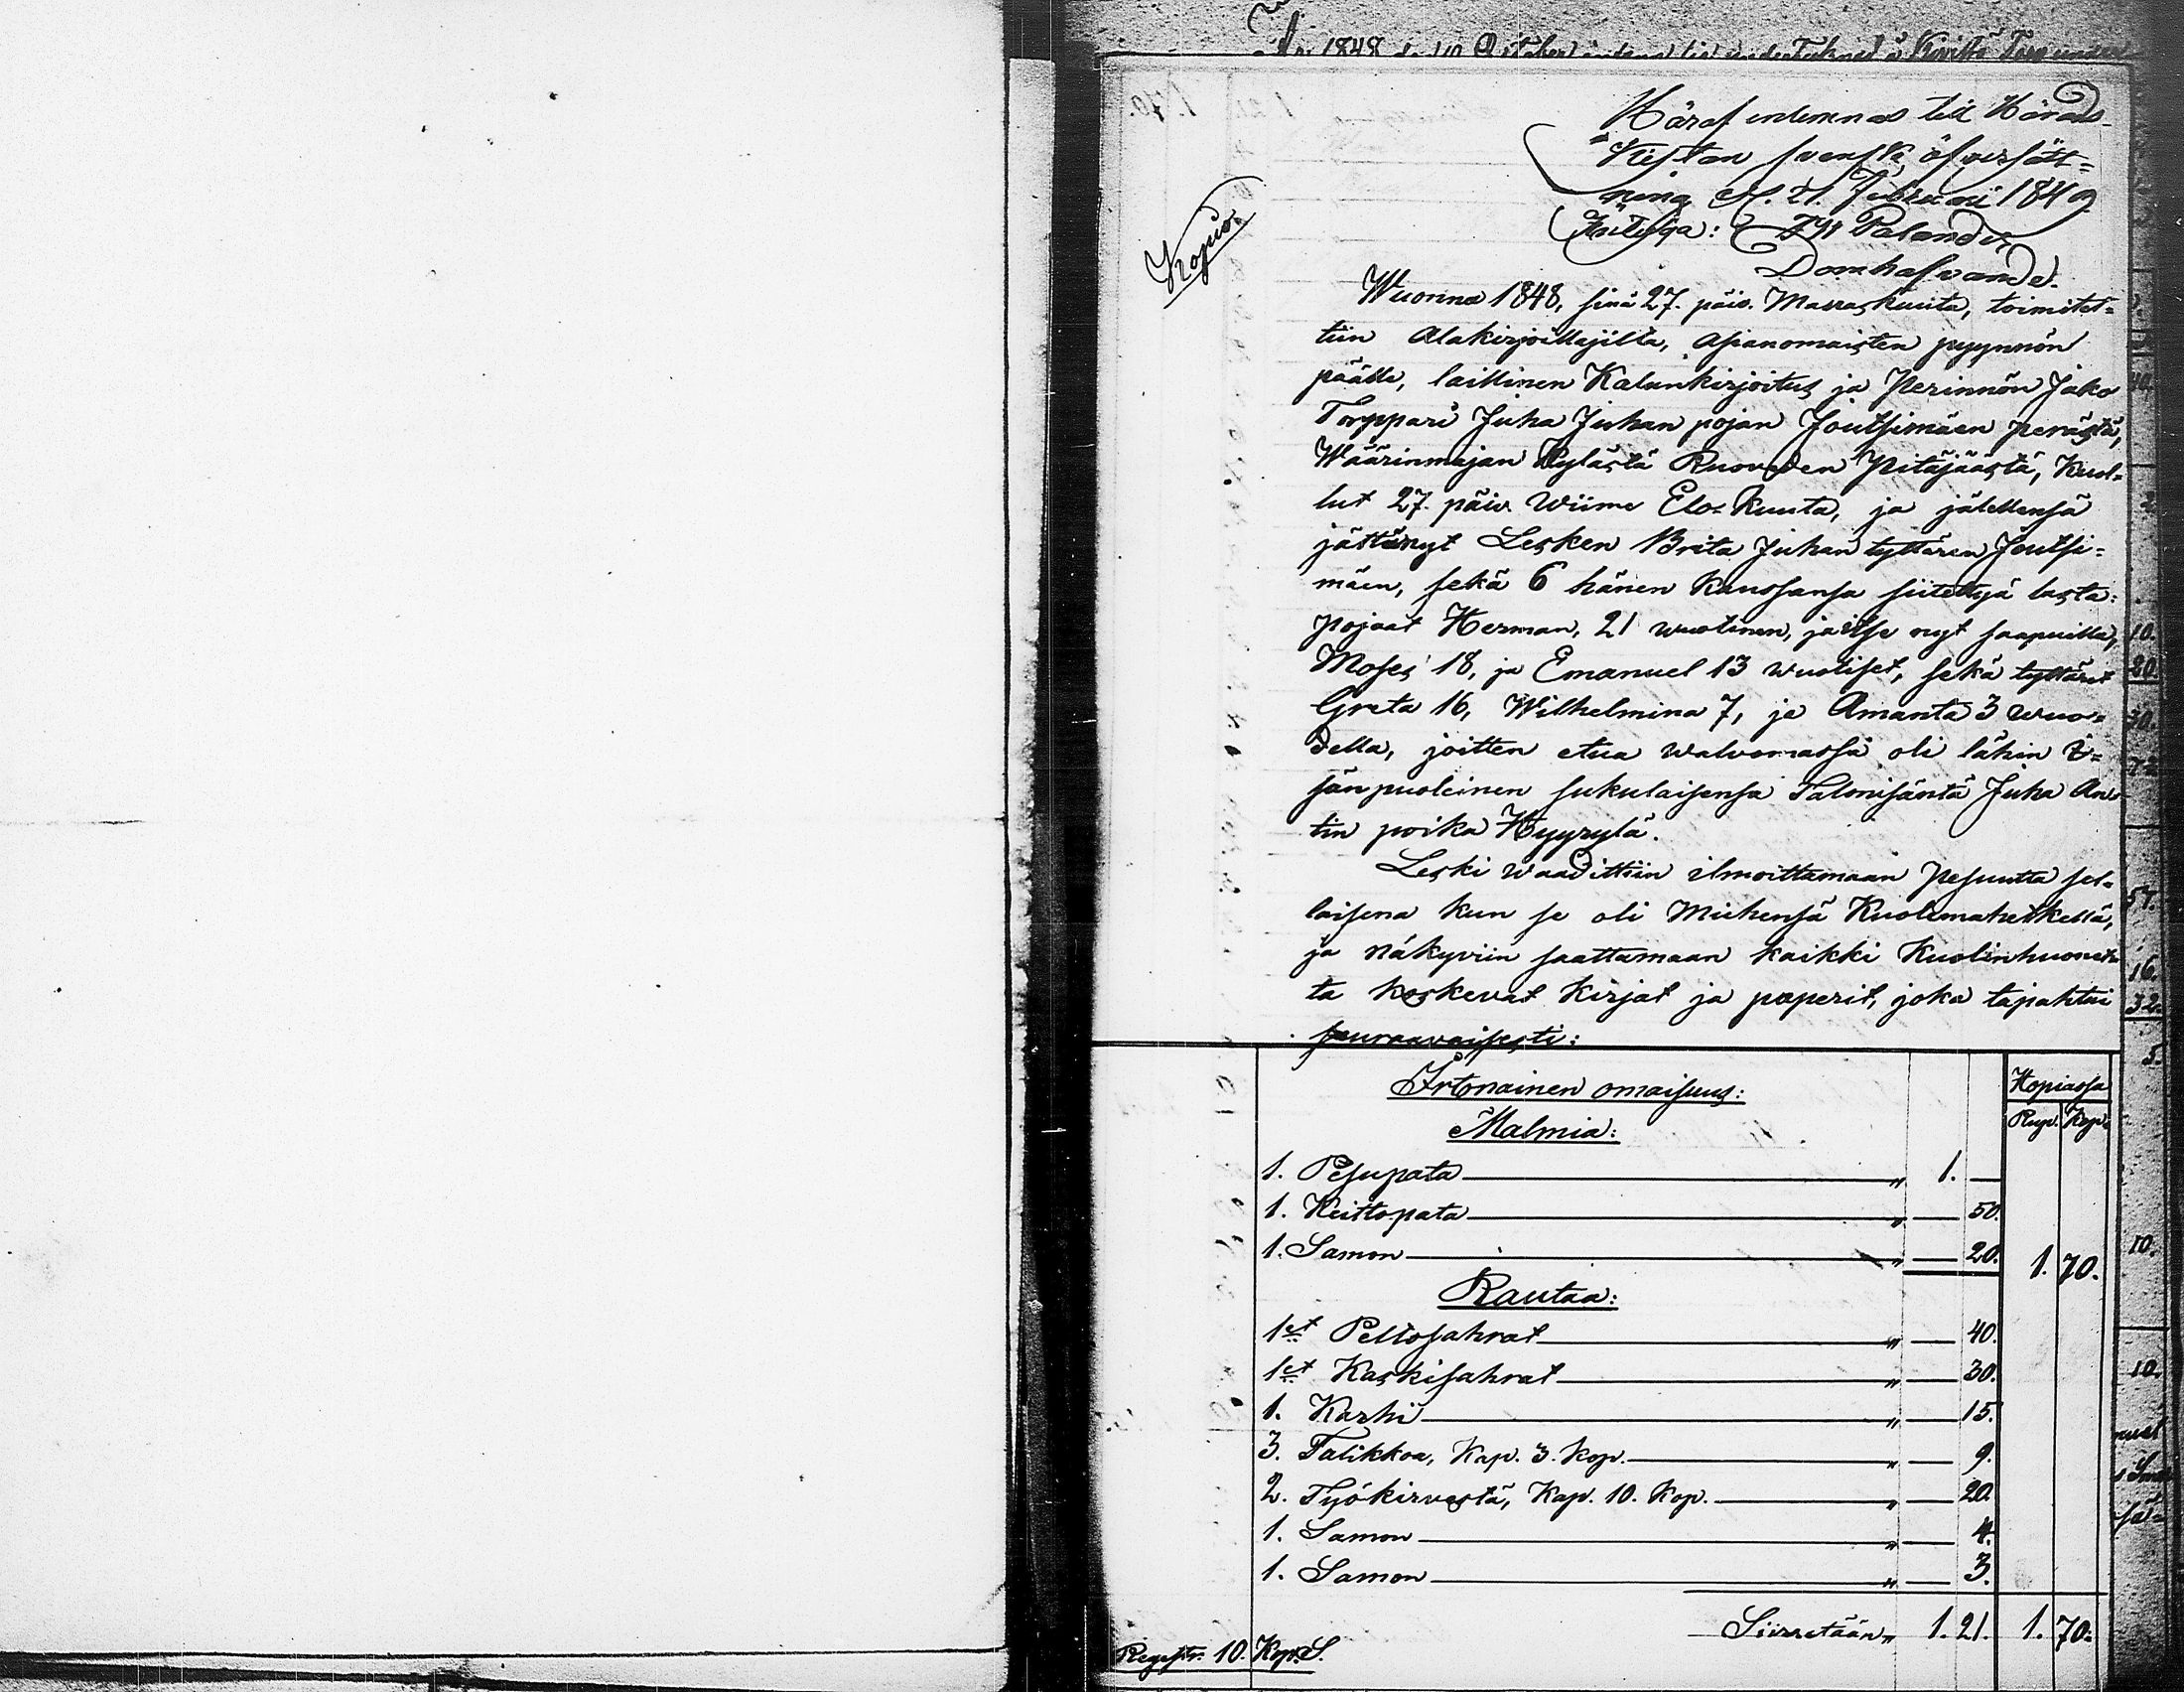 År 1848 den 10 October
Häraf inlemnas till Härads
Kistan svensk öfversätt=
ning, d. 21. Februari 1849
Palander
Domhafvande.
Kopio.
Wuonna 1848, sinä 27. päiv. Marraskuuta, toimitet=
tiin Alakirjoittajilta, asianomaisten pyynnön
päälle, laillinen Kalunkirjoitus ja Perinnön Jako
Torppari Juha Juhan pojan Joutsimäen perästä,
Wäärinmajan Kylästä Ruoveden Pitäjäästä, Kuol=
lut 27. päiv. Wiime Elo-Kuuta, ja jälellensä
jättänyt Lesken Brita Juhan tyttären Joutsi=
mäen, sekä 6 hänen kanssansa siitettyä lasta:
pojaat Herman, 21 wuotinen, ja itse nyt saapuilla,
Moses 18, ja Emanuel 13 wuotiset, sekä tyttäret
Greta 16, Wilhelmina 7, ja Amanta 3 wuo=
della, joitten etua walvomassa oli lähin i=
sänpuoleinen sukulaisensa Talonisäntä Juha An=
tin poika Hyyrylä.
Leski waadittiin ilmoittamaan Pesuutta sel=
laisena kun se oli Miehensä Kuolemahetkellä,
ja näkyviin saattamaan kaikki Kuolinhuonet=
ta koskevat Kirjat ja paperit, joka tapahtui
seuraavaisesti:
Irtonainen omaisuus:
Kopiassa
Rup. Kop.
Malmia:
1. Pesupata — " 1. —
1. Keittopata — " — 50.
1. Samon — " — 20. 1. 70.
Rautaa:
1et Peltosahrat — " — 40.
1et Kaskisahrat — " — 30.
1. Karhi — " — 15.
3. Talikkoa, Kap. 3. Kop. — " — 9.
2. Työkirvestä, Kap. 10. Kop. — " — 20.
1. Samon — " — 4.
1. Samon — " — 3.
Siirretään " 1. 21. 1. 70.
Registr. 10. Kop. S.